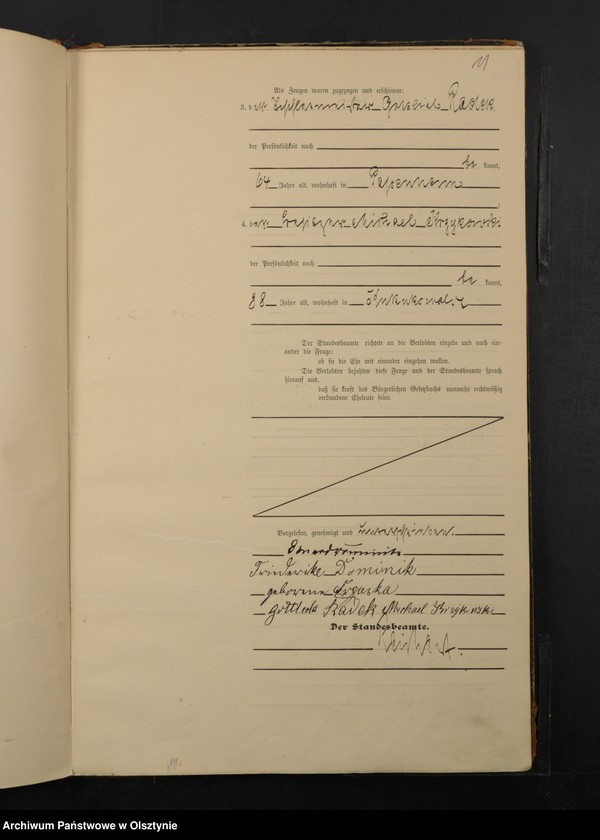 11
Als Zeugen waren zugezogen und erschienen:
3. der Gottlieb Radek
der Persönlichkeit nach
be kannt,
64 Jahre alt, wohnhaft in
4. der Michael Krzykowski
der Persönlichkeit nach
be kannt,
38 Jahre alt, wohnhaft in
Der Standesbeamte richtete an die Verlobten einzeln und nach ein-
ander die Frage:
ob sie die Ehe mit einander eingehen wollen.
Die Verlobten bejahten diese Frage und der Standesbeamte sprach
hierauf aus,
daß sie kraft des Bürgerlichen Gesetzbuchs nunmehr rechtmäßig
verbundene Eheleute seien.
Vorgelesen, genehmigt und unterschrieben.
Friederike Dominik
geborene
Gottlieb Radek Michael
Der Standesbeamte.
Archiwum Państwowe w Olsztynie